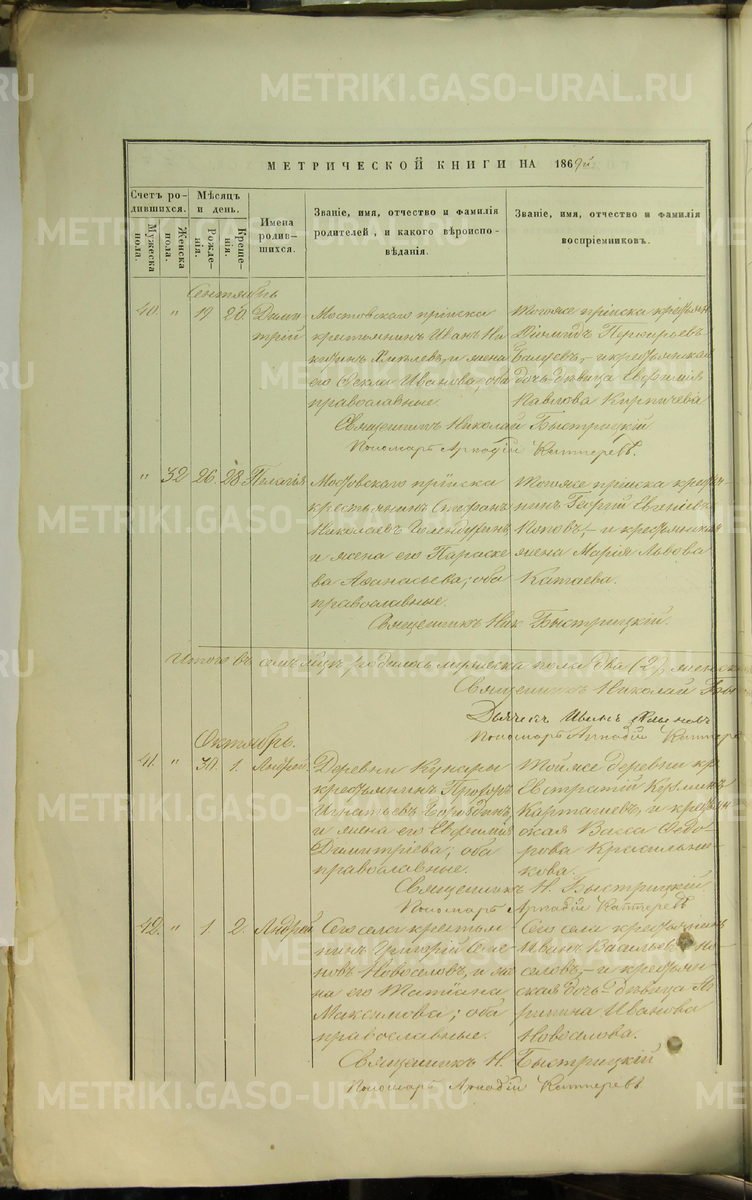 МЕТРИЧЕСКОЙ КНИГИ НА 1869й
Счетъ ро-
дившихся.
Мужеска
пола.
Женска
пола.
Мѣсяцъ
и день.
Рожде-
нія.
Креще-
нія.
Имена
родив-
шихся.
Званіе, имя, отчество и фамилія
родителей, и какого вѣроиспо-
вѣданія.
Званіе, имя, отчество и фамилія
воспріемниковъ.
Сентябрь
40. " 19 20. Дими-
трій
Мостовскаго пріиска
крестьянинъ Иванъ Ни
и жена
его Ѳекла Иванова; оба
православные.
Тогоже пріиска крестьян.
Діомидъ
и крестьянская
дочь-дѣвица Евфимія
Павлова Кирпичева
Священникъ Николай Быстрицкій
Пономарь Аркадій
" 32 26. 28. Пелагія
Мостовскаго пріиска
крестьянинъ Стефанъ
Николаевъ
и жена его Параске
ва Аѳанасьева; оба
православные.
Тогоже пріиска кресть-
нинъ
Поповъ, и крестьянская
жена Марія Львова
Катаева.
Священникъ Ник. Быстрицкій.
Итого въ семъ мѣсяцѣ родилось мужеска пола два (2), женска
Священникъ Николай Быс
Дьячекъ Иванъ
Пономарь Аркадій
Октябрь.
41. " 30. 1. Андрей
Деревни Кунары
крестьянинъ
Игнатьевъ Бороздинъ,
и жена его Евфимія
Димитріева; оба
православные.
Тойже деревни кр
Евстратій Козминъ
Карташевъ, и крестьян
ская Васса Ѳедо-
рова Красильни-
кова.
Священникъ Н. Быстрицкій.
Пономарь Аркадій
42. " 1 2. Андрей
Сего села крестья
нинъ Григорій Семе-
новъ Новоселовъ, и же
на его Татіана
Максимова; оба
православные.
Сего села крестьянинъ
Иванъ Васильевъ Но-
селовъ, и крестьян
ская дочь-дѣвица Ма
рина Иванова
Новоселова.
Священникъ Н. Быстрицкій
Пономарь Аркадій
METRIKI.GASO-URAL.RU